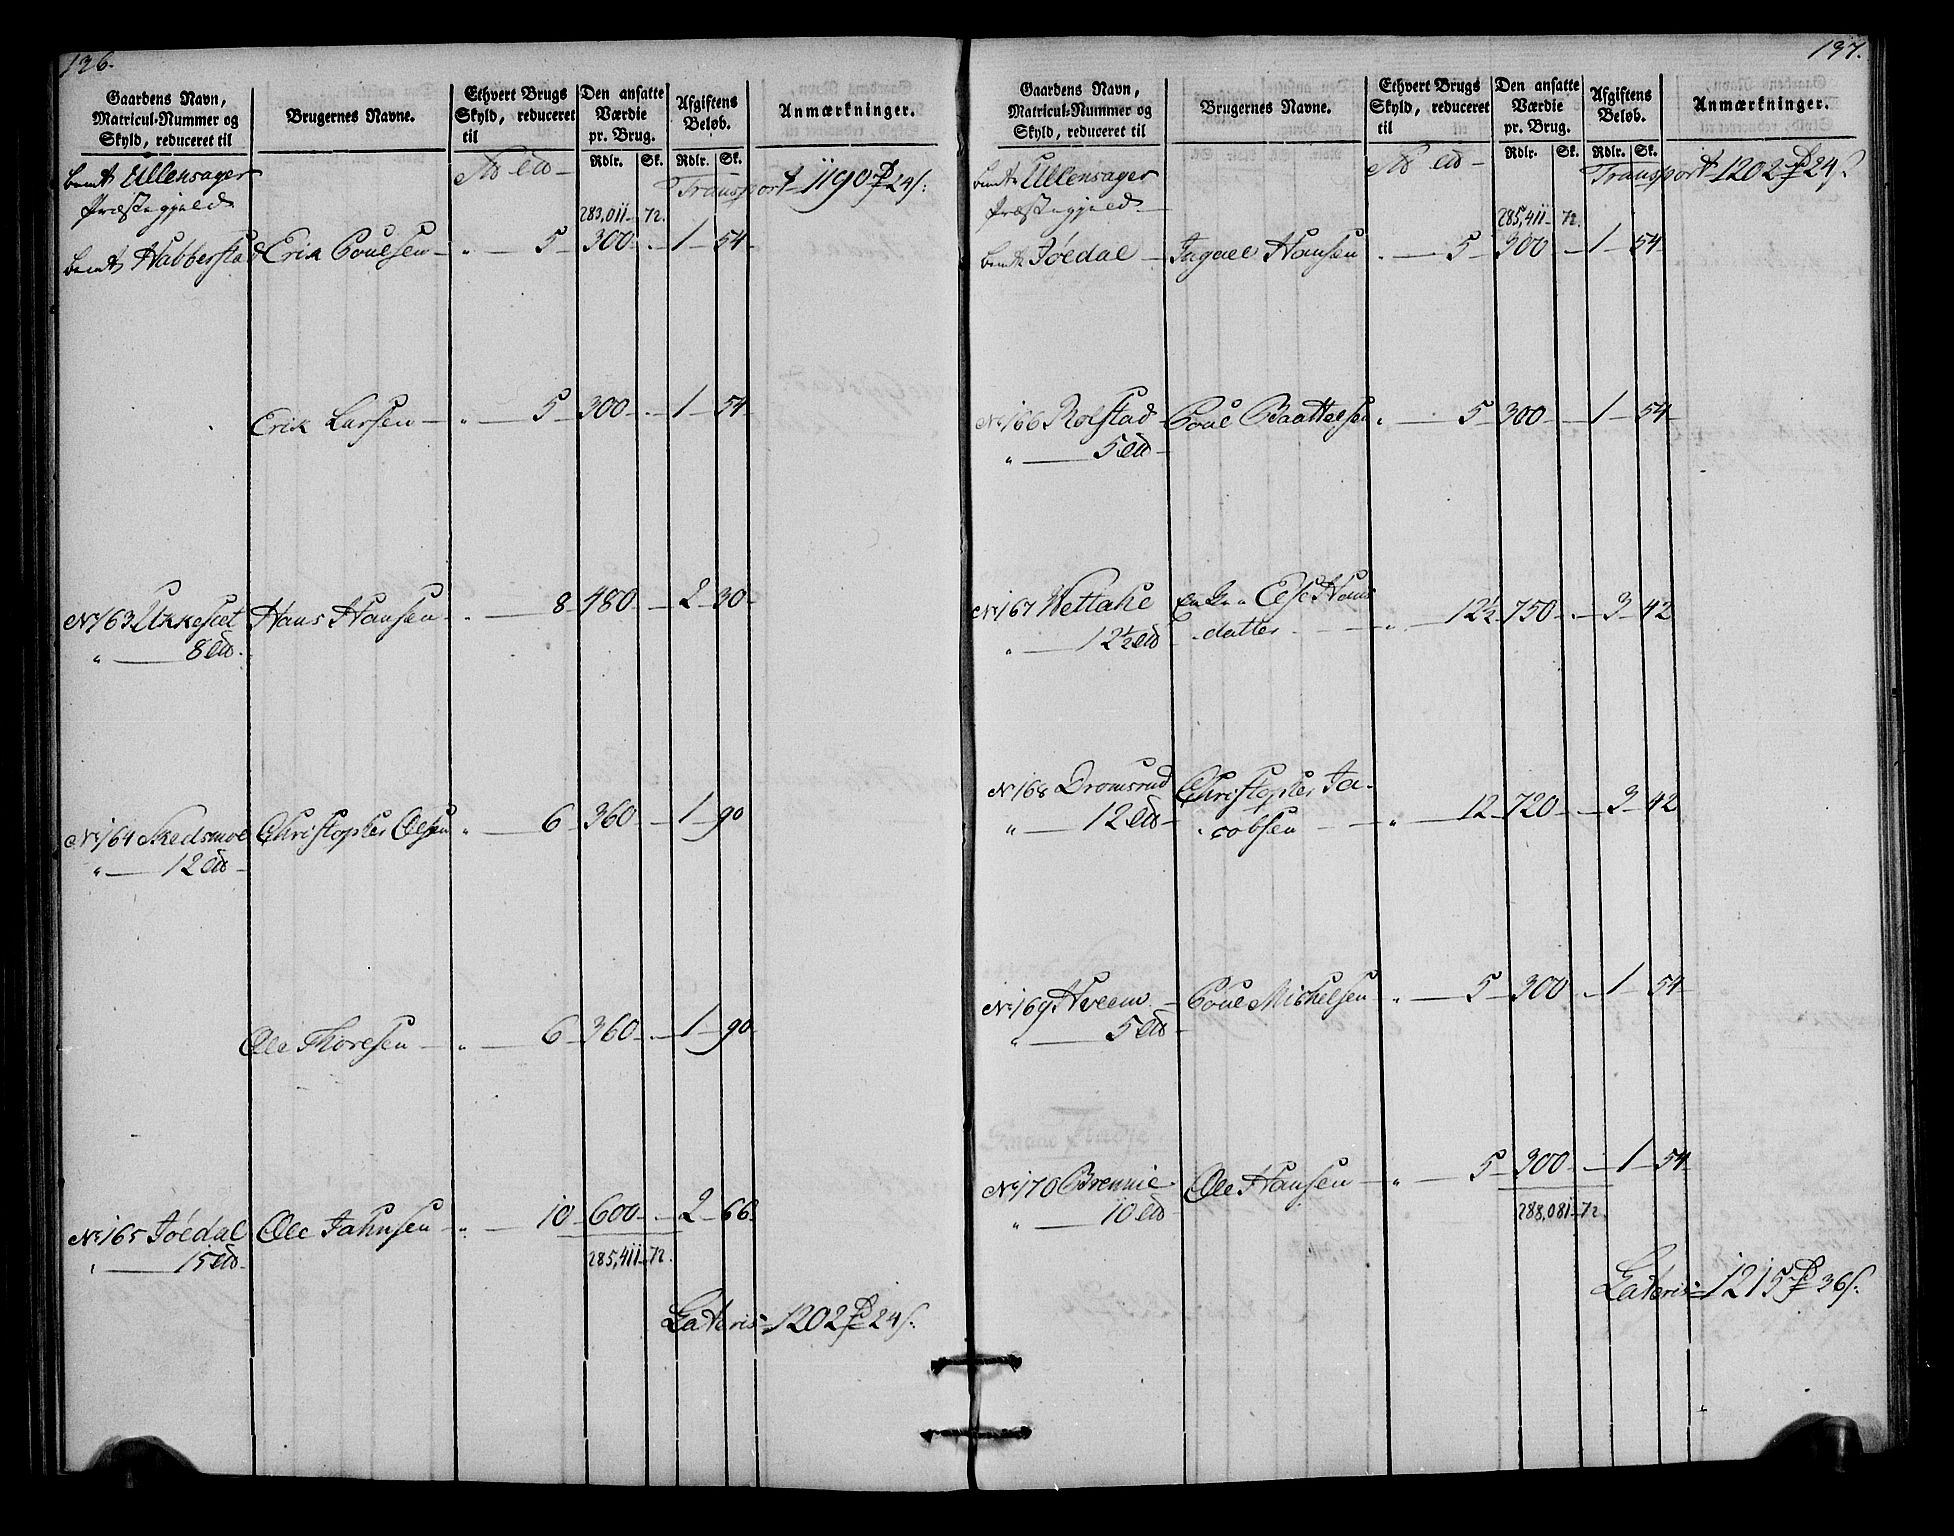 136.
Gaardens Navn, Matricul-Nummer og Skyld, reduceret til
Brugernes Navne.
Ethvert Brugs Skyld, reduceret til
Den ansatte Værdie pr. Brug.
Rdlr. Sk.
Afgiftens Beløb.
Rdlr. Sk.
Anmærkninger.
bemte Ullensager
Præstegjeld
Transport 1190 24 s:
283,011 72.
bemte Habberstad Erik Poulsen — " — 5 — 300 — . — 1 — 54
Erik Larsen — " — 5 — 300 — . — 1 — 54
No 163 Ukkestet Hans Hansen — " — 8 — 480 — 2 — 30
" — 8
No 164 Skedsmoe Christopher Olsen " — 6 — 360 — 1 — 90
" — 12
Ole Thoresen — " — 6 — 360 — 1 — 90
No 165 Jöedal Ole Jahnsen — " — 10 — 600 — 2 — 66
" — 15
285,411 72.
Lateris 1202 24 s:
137.
Gaardens Navn, Matricul-Nummer og Skyld, reduceret til
Brugernes Navne.
Ethvert Brugs Skyld, reduceret til
Den ansatte Værdie pr. Brug.
Rdlr. Sk.
Afgiftens Beløb.
Rdlr. Sk.
Anmærkninger.
bemte Ullensager
Præstegjeld
Transport 1202 24 s
285,411 72.
bemte Jöedal — Ingvel Hansen . — 5 — 300 — 1 — 54
No 166 Rolstad Poul Baattelsen " — 5 — 300 — 1 — 54
" — 5
No 167 Wettahe Enke Else Hans
" — 12½ datter — " — 12½ — 750 — 3 — 42
No 168 Dromsrud Christopher Ja-
" — 12 cobsen — " — 12 — 720 — 3 — 42
No 169 Hveem — Poul Michelsen — " — 5 — 300 — 1 — 54
" — 5
No 170 Brennie Ole Hansen — " — 5 — 300 — 1 — 54
" — 10
288,081 72.
Lateris 1215 36 s: